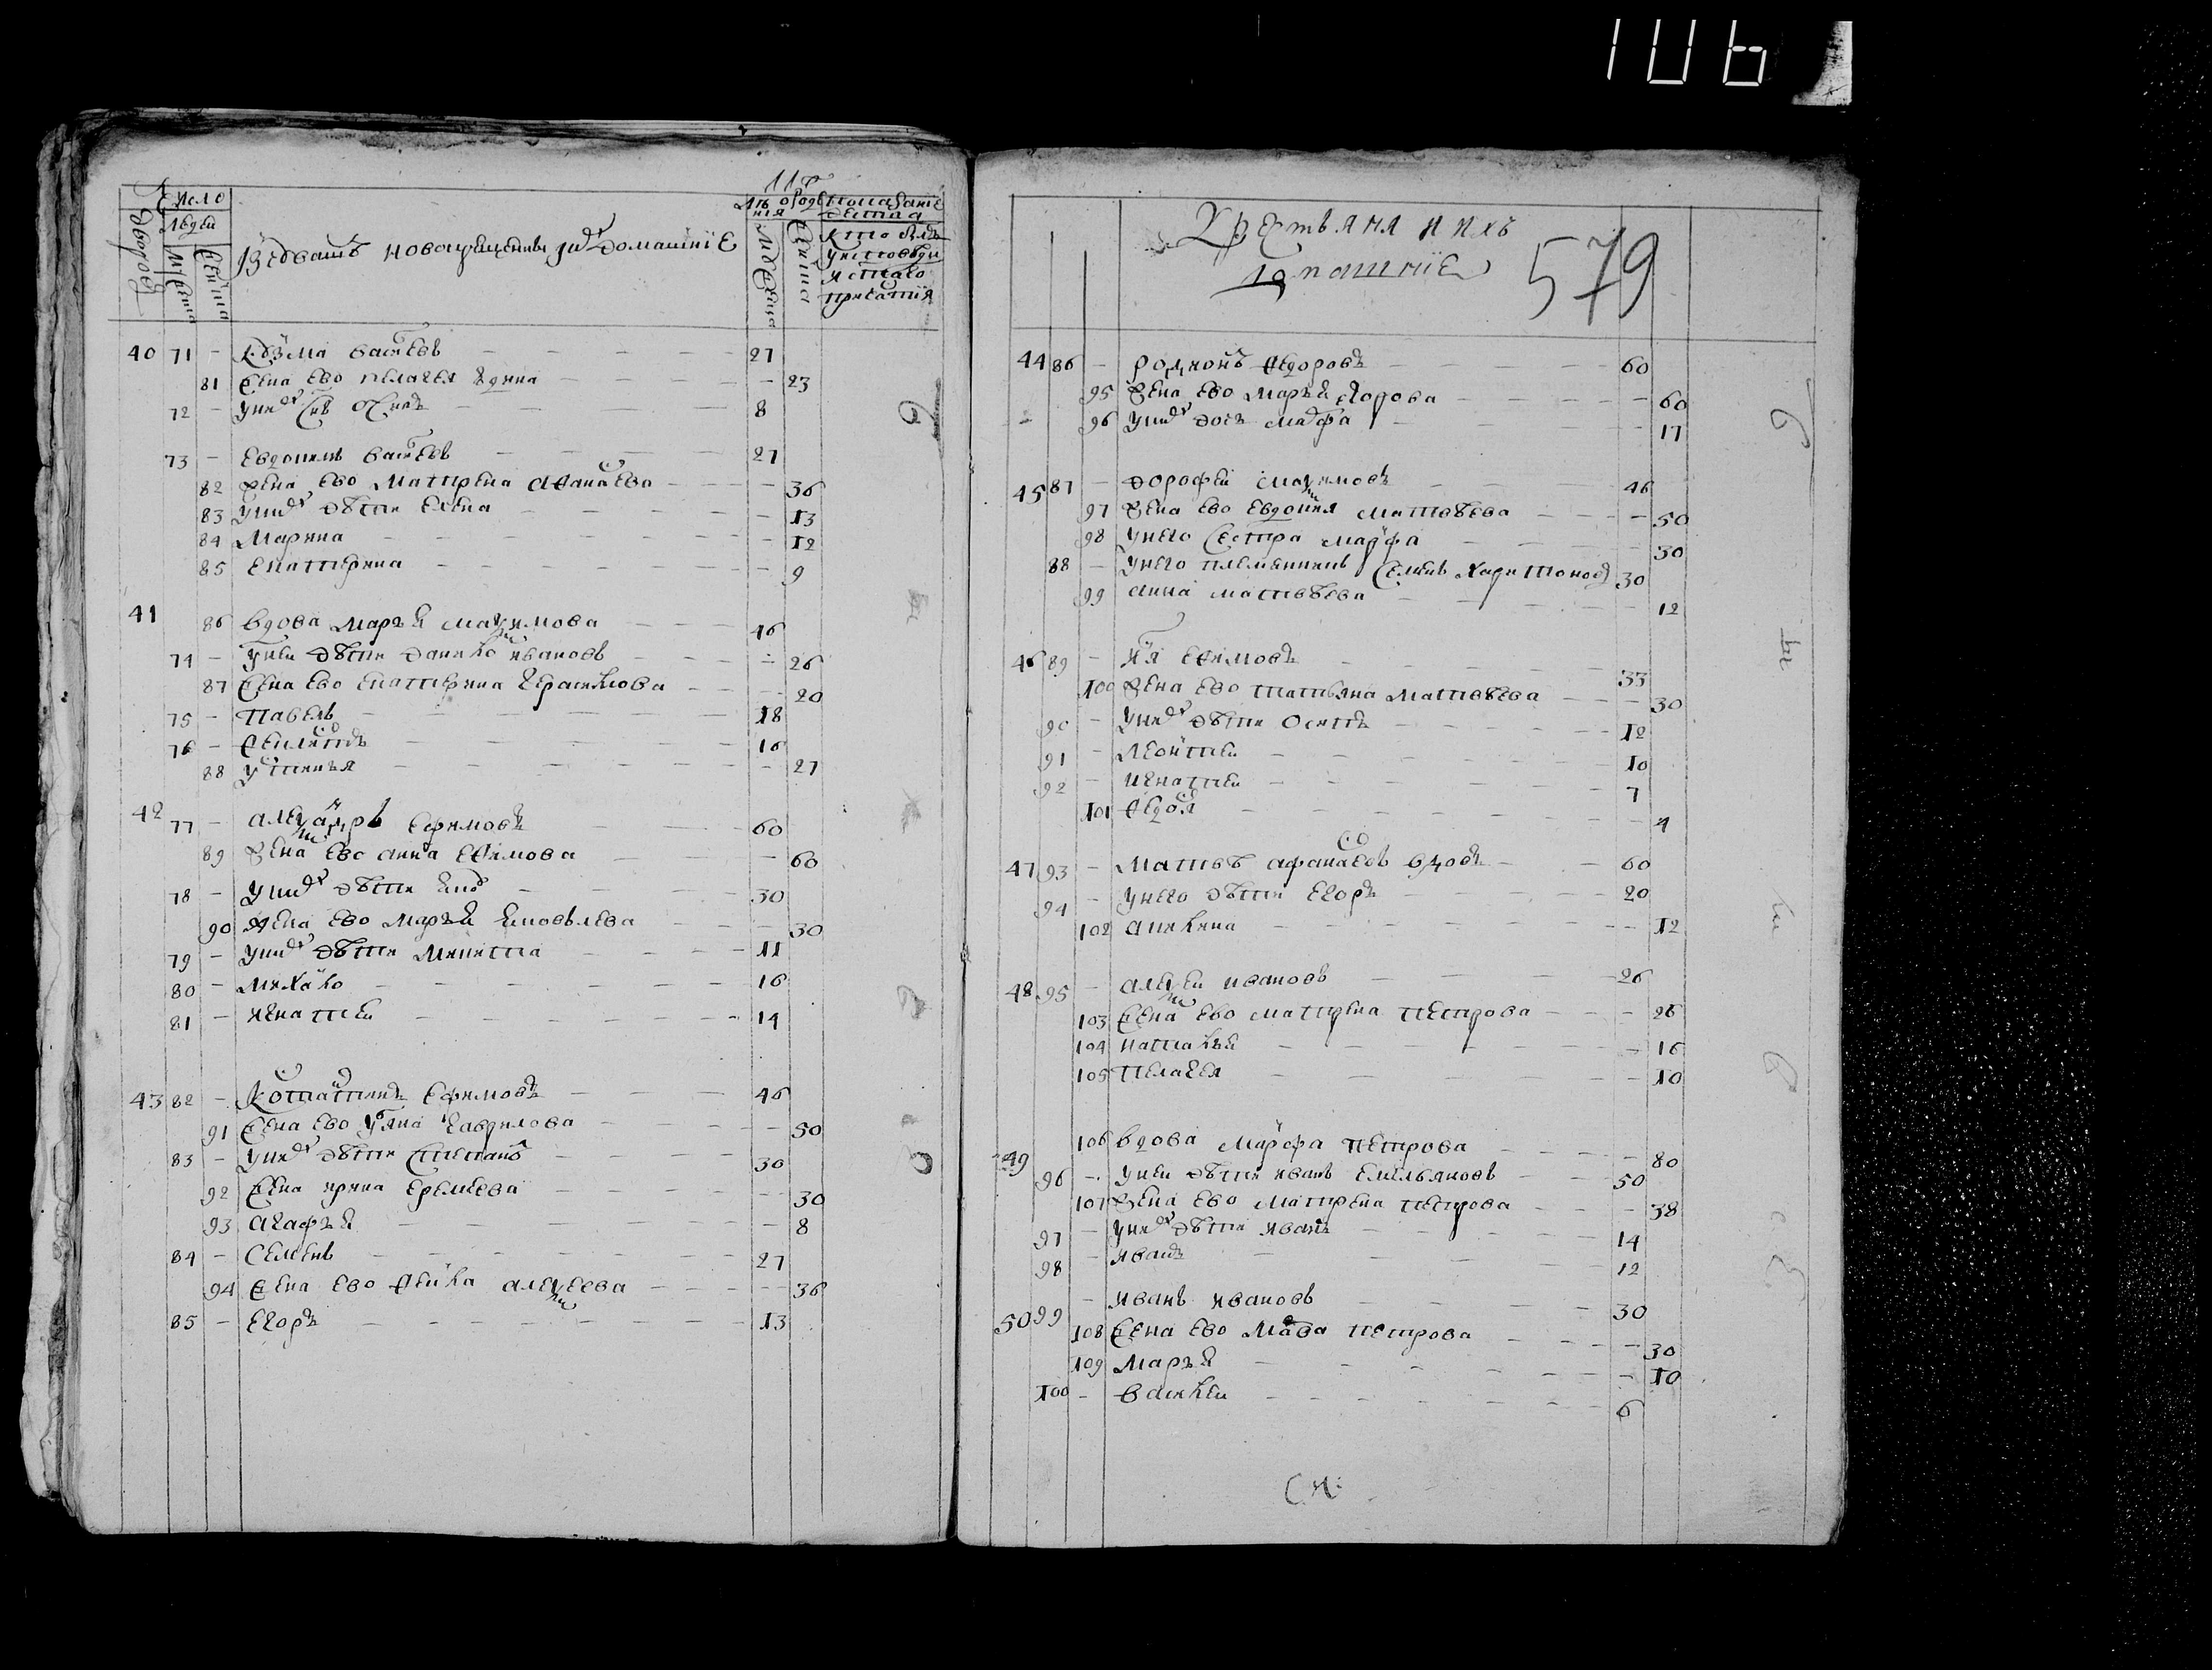 106
Число
дворовъ
людей
мужеска
женска
новокрещены ихъ домашніе
лѣта от рожденія
мужеска
женска
Показаніе действа
кто былъ у исповѣди и святаго причастія
40 71 – Козма Васильевъ 27
81 жена ево Пелагея 23
72 – у нихъ сынъ 8
73 – Евдокимъ Васильевъ 27
82 жена ево Матрена Афанасьева 36
83 у нихъ дѣти Елена 13
84 Марина 12
85 Екатерина 9
41 86 вдова Марья Максимова 46
74 – у ней дѣти Данило Ивановъ 26
87 жена ево Екатерина Герасимова 20
75 – Павелъ 18
76 – Филипъ 16
88 Устинья 27
42 77 – Александръ Ефимовъ 60
89 жена ево Анна Ефимова 60
78 – у нихъ дѣти Яковъ 30
90 жена ево Марья Яковлева 30
79 – у нихъ дѣти Микита 11
80 – Михайло 16
81 – Игнатей 14
43 82 – Костантинъ Ефимовъ 46
91 жена ево Уляна Гаврилова 50
83 – у нихъ дѣти Степанъ 30
92 жена Ирина Еремѣева 30
93 Агафья 8
84 – Семенъ 27
94 жена ево Фекла Алексеева 36
85 – Егоръ 13
Крестьяня и ихъ
домашніе
579
44 86 – Родионъ Федоровъ 60
95 жена ево Марья Егорова 60
96 у нихъ дочь Марфа 17
45 87 – Дорофей Максимовъ 46
97 жена ево Евдокия Матвѣева 50
98 у него сестра Марфа 30
88 – у него племянникъ Семенъ Харитоновъ 30
99 Анна Матвѣева 12
46 89 – Илья Ефимовъ 33
100 жена ево Татьяна Матвѣева 30
90 – у нихъ дѣти Осипъ 12
91 – Леонтей 10
92 – Игнатей 7
101 Федосья 4
47 93 – Матвѣй Афанасьевъ вдовъ 60
94 – у него дѣти Егоръ 20
102 Акилина 12
48 95 – Алексей Ивановъ 26
103 жена ево Матрена Петрова 26
104 Наталья 16
105 Пелагея 10
49 106 вдова Марфа Петрова 80
96 – у ней дѣти Иванъ Емельяновъ 50
107 жена ево Матрена Петрова 38
97 – у нихъ дѣти Иванъ 14
98 – Иванъ 12
50 99 – Иванъ Ивановъ 30
108 жена ево Мавра Петрова 30
109 Марья 10
100 – Василей 6